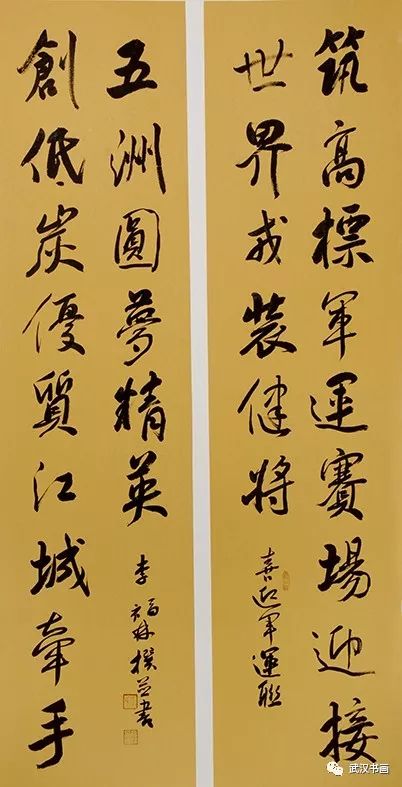 筑高標軍運賽場迎接
世界戎裝健將
喜迎軍運聯
創低炭優質江城牽手
五洲圓夢精英
李福林撰並書
武汉书画